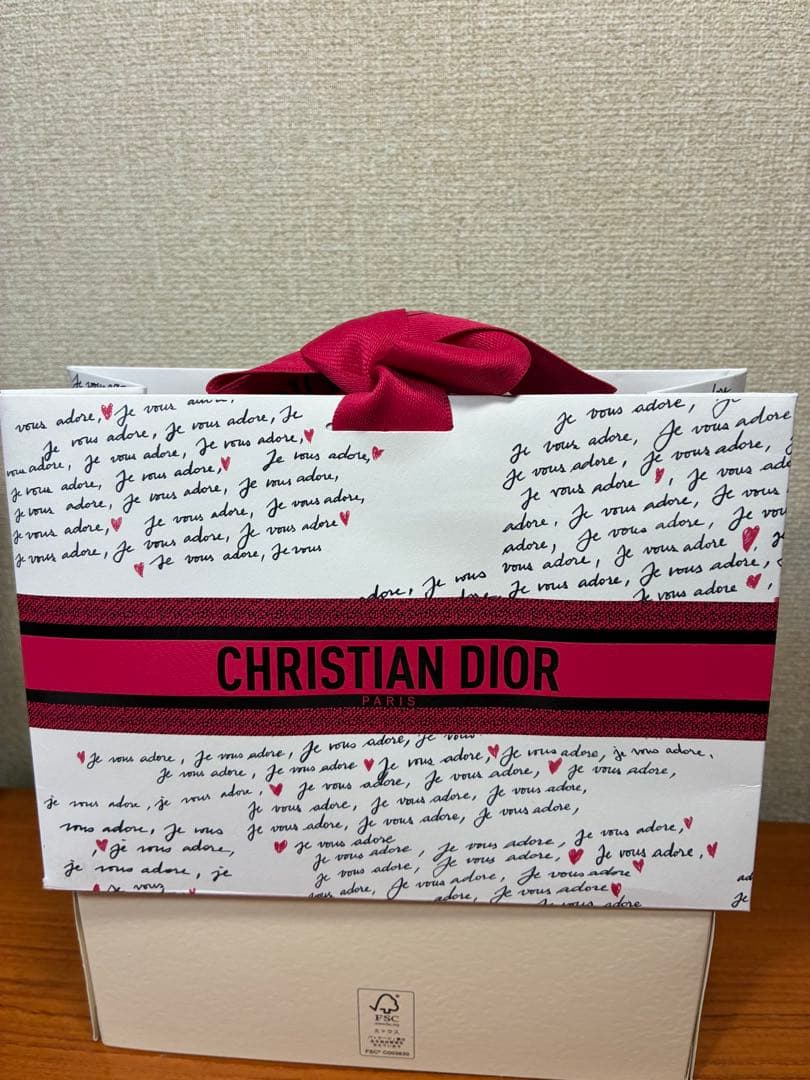 Je vous
vous adore, Je vous
Je vous adore, Je vous adore, Je
vous adore, Je vous adore, Je vous adore,
Je vous adore, Je vous adore, Je vous adore,
Je vous adore, Je vous adore, Je vous adore,
Je vous adore, Je vous adore, Je vous adore,
Je vous adore, Je vous adore, Je vous adore
Je vous adore, Je vous
Je vous adore, Je
Je vous adore, Je vous adore
Je vous adore, Je vous adore,
Je vous adore, Je vous
adore, Je vous adore, Je vous
adore, Je vous adore, Je vous
adore, Je vous adore, Je vous adore
Je vous adore, Je vous adore
Je vous adore
CHRISTIAN DIOR
PARIS
Je vous adore, Je vous adore, Je vous adore, Je vous
Je vous adore, Je vous adore, Je vous adore, Je vous adore, je vous adore,
je vous adore, je vous adore, Je vous adore, Je vous adore, Je vous adore,
Je vous adore, Je vous adore, Je vous adore,
vous adore, Je vous
Je vous adore, Je vous adore, Je vous adore,
je vous adore,
Je vous adore
je vous adore, je
Je vous adore, Je vous adore, Je vous adore,
Je vous adore, Je vous adore, Je vous adore,
je vous
Je vous adore, Je vous adore, Je vous adore
adore, Je vous adore, Je vous adore
adore, Je vous adore
FSC
www.fsc.org
ミックス
FSC® C003630